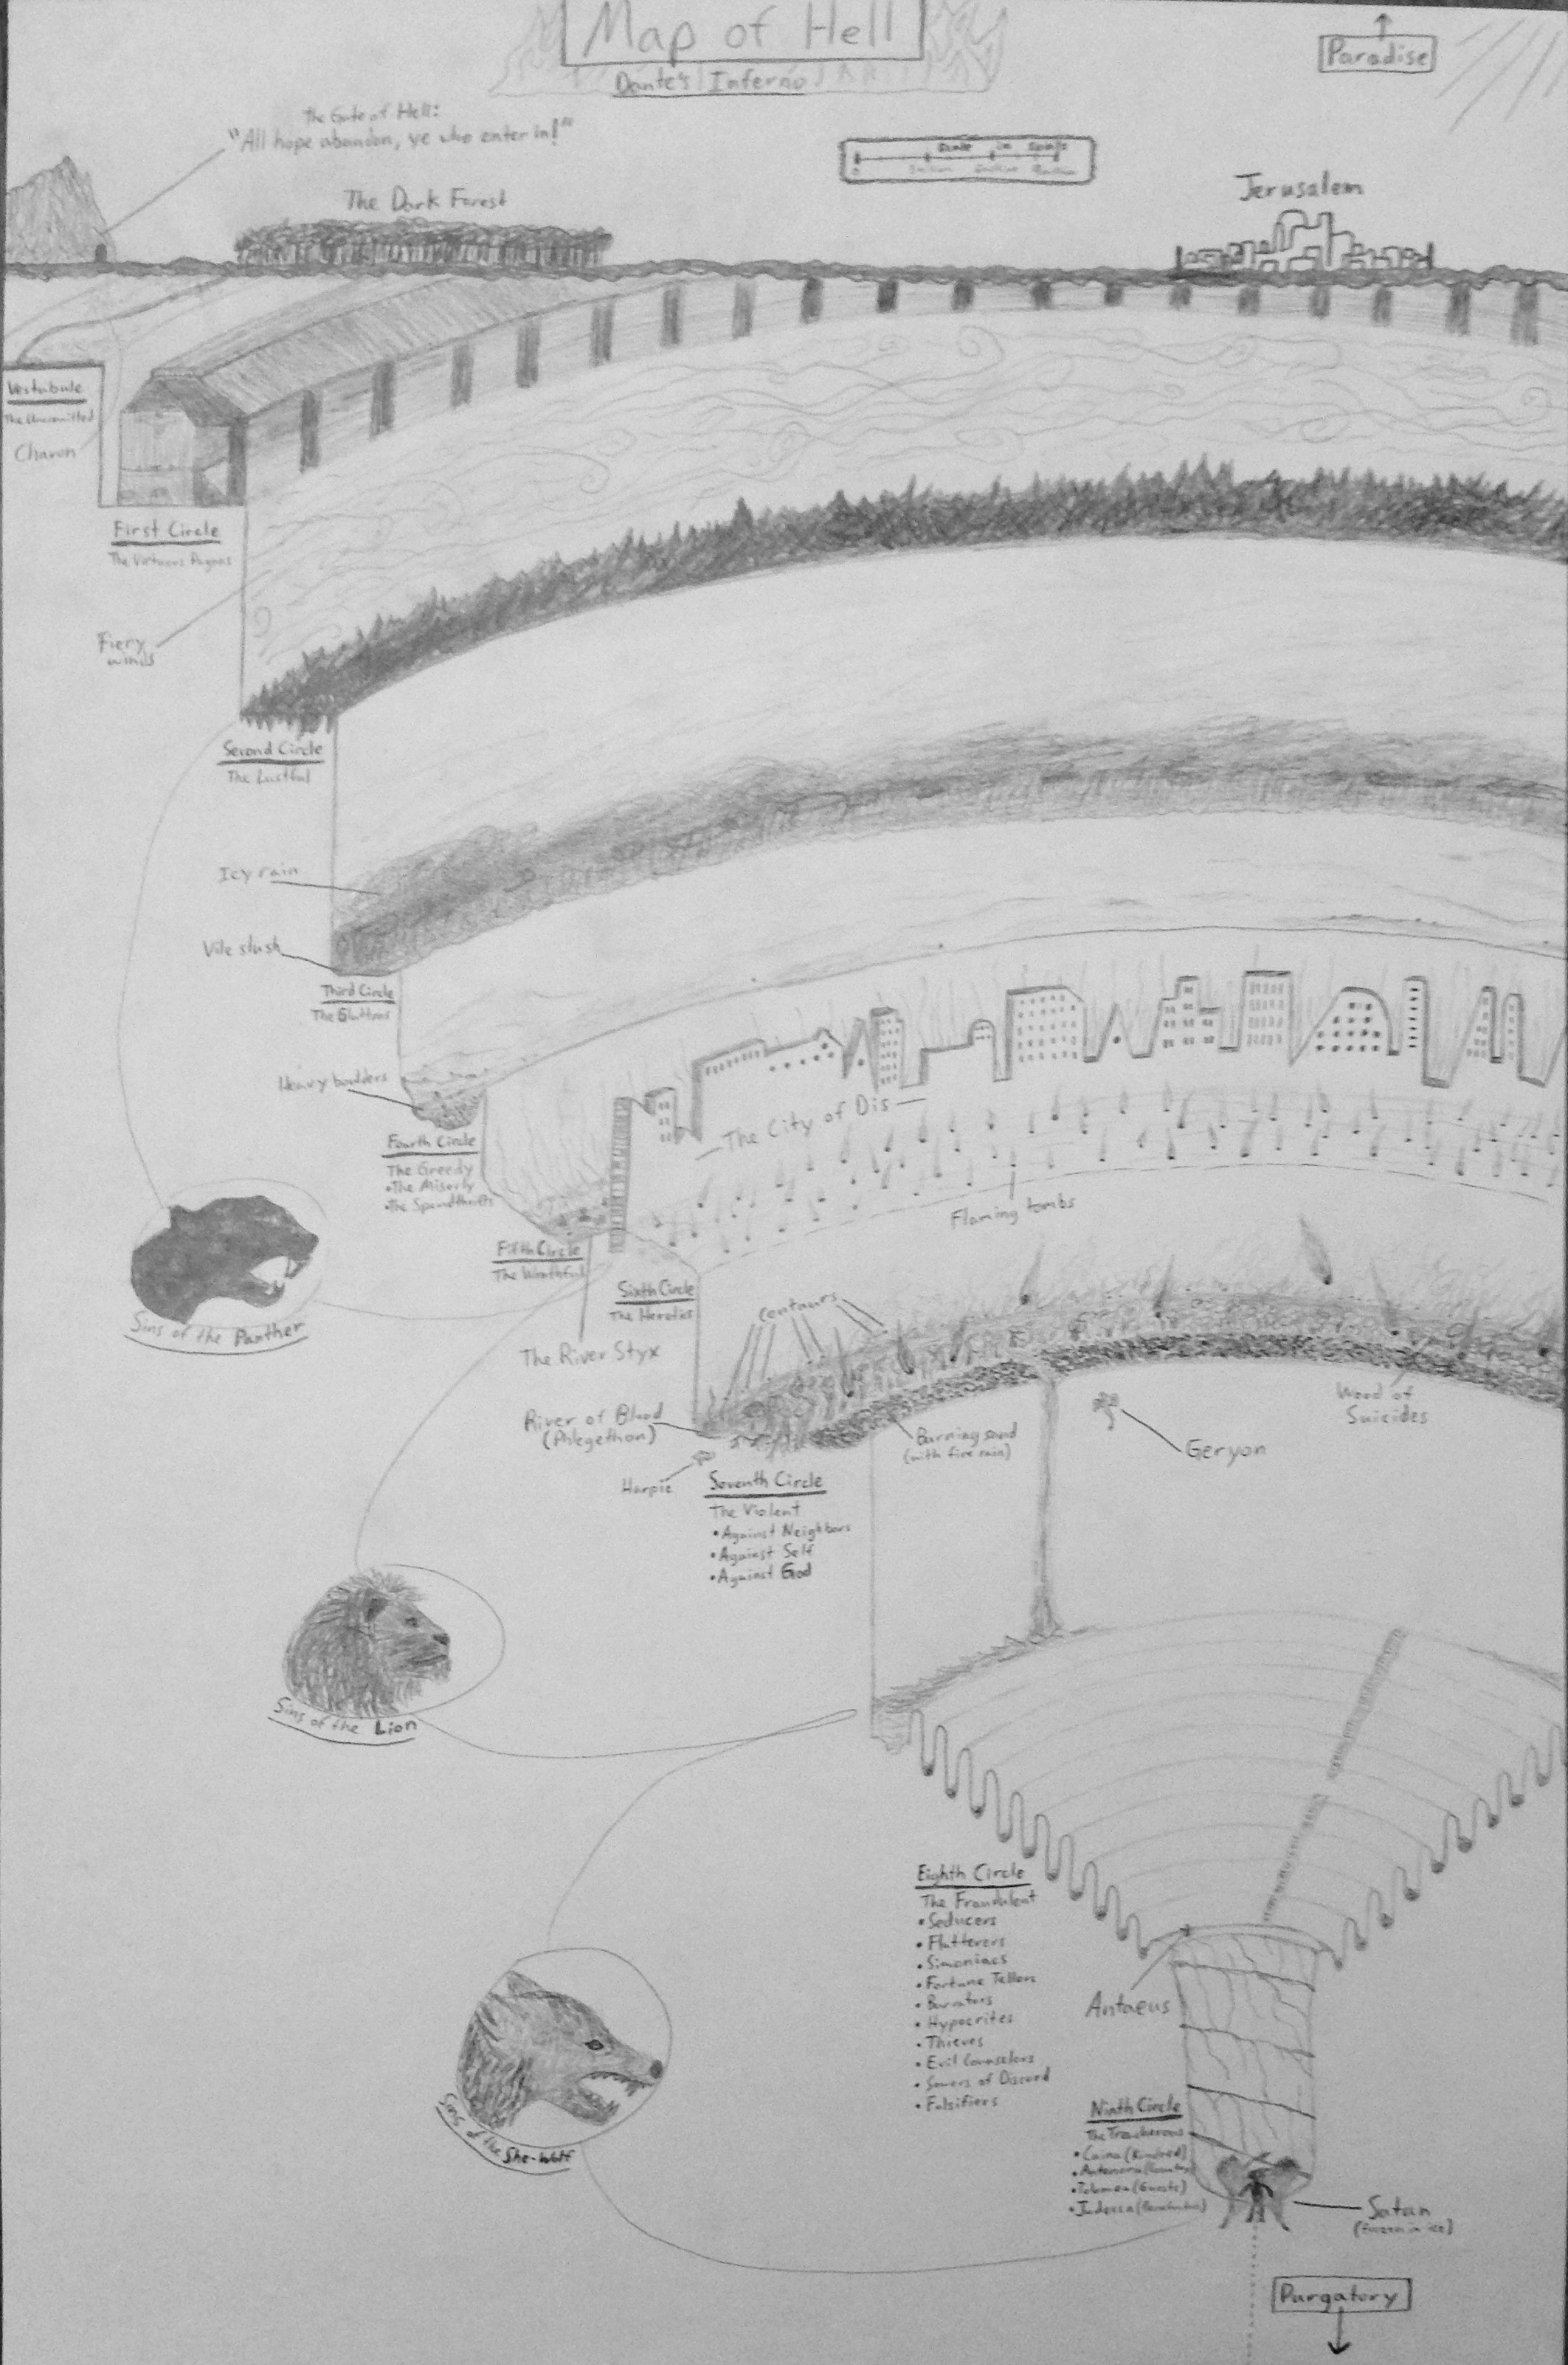 Map of Hell
Dante's Inferno
Paradise
The Gate of Hell:
"All hope abandon, ye who enter in!"
The Dark Forest
Scale in Souls
0
Jerusalem
Vestubule
The Uncomitted
Charon
First Circle
The Virtuous Pagans
Fiery
winds
Second Circle
The Lustful
Icy rain
Vile slush
Third Circle
The Gluttons
Heavy boulders
Fourth Circle
The Greedy
•The Miserly
•The Spendthrifts
The City of Dis
Flaming tombs
Fifth Circle
The Wrathful
Sixth Circle
The Heretics
The River Styx
Sins of the Panther
Centaurs
River of Blood
(Phlegethon)
Harpie
Burning sand
(with fire rain)
Wood of
Suicides
Geryon
Seventh Circle
The Violent
•Against Neighbors
•Against Self
•Against God
Sins of the Lion
Eighth Circle
The Fraudulent
•Seducers
•Flatterers
•Simoniacs
•Fortune Tellers
•Barrators
•Hypocrites
•Thieves
•Evil Counselors
•Sowers of Discord
•Falsifiers
Antaeus
Sins of the She-Wolf
Ninth Circle
The Treacherous
•Caina (Kindred)
•Antenora (Country)
•Tolomea (Guests)
•Judecca
Satan
(frozen in ice)
Purgatory